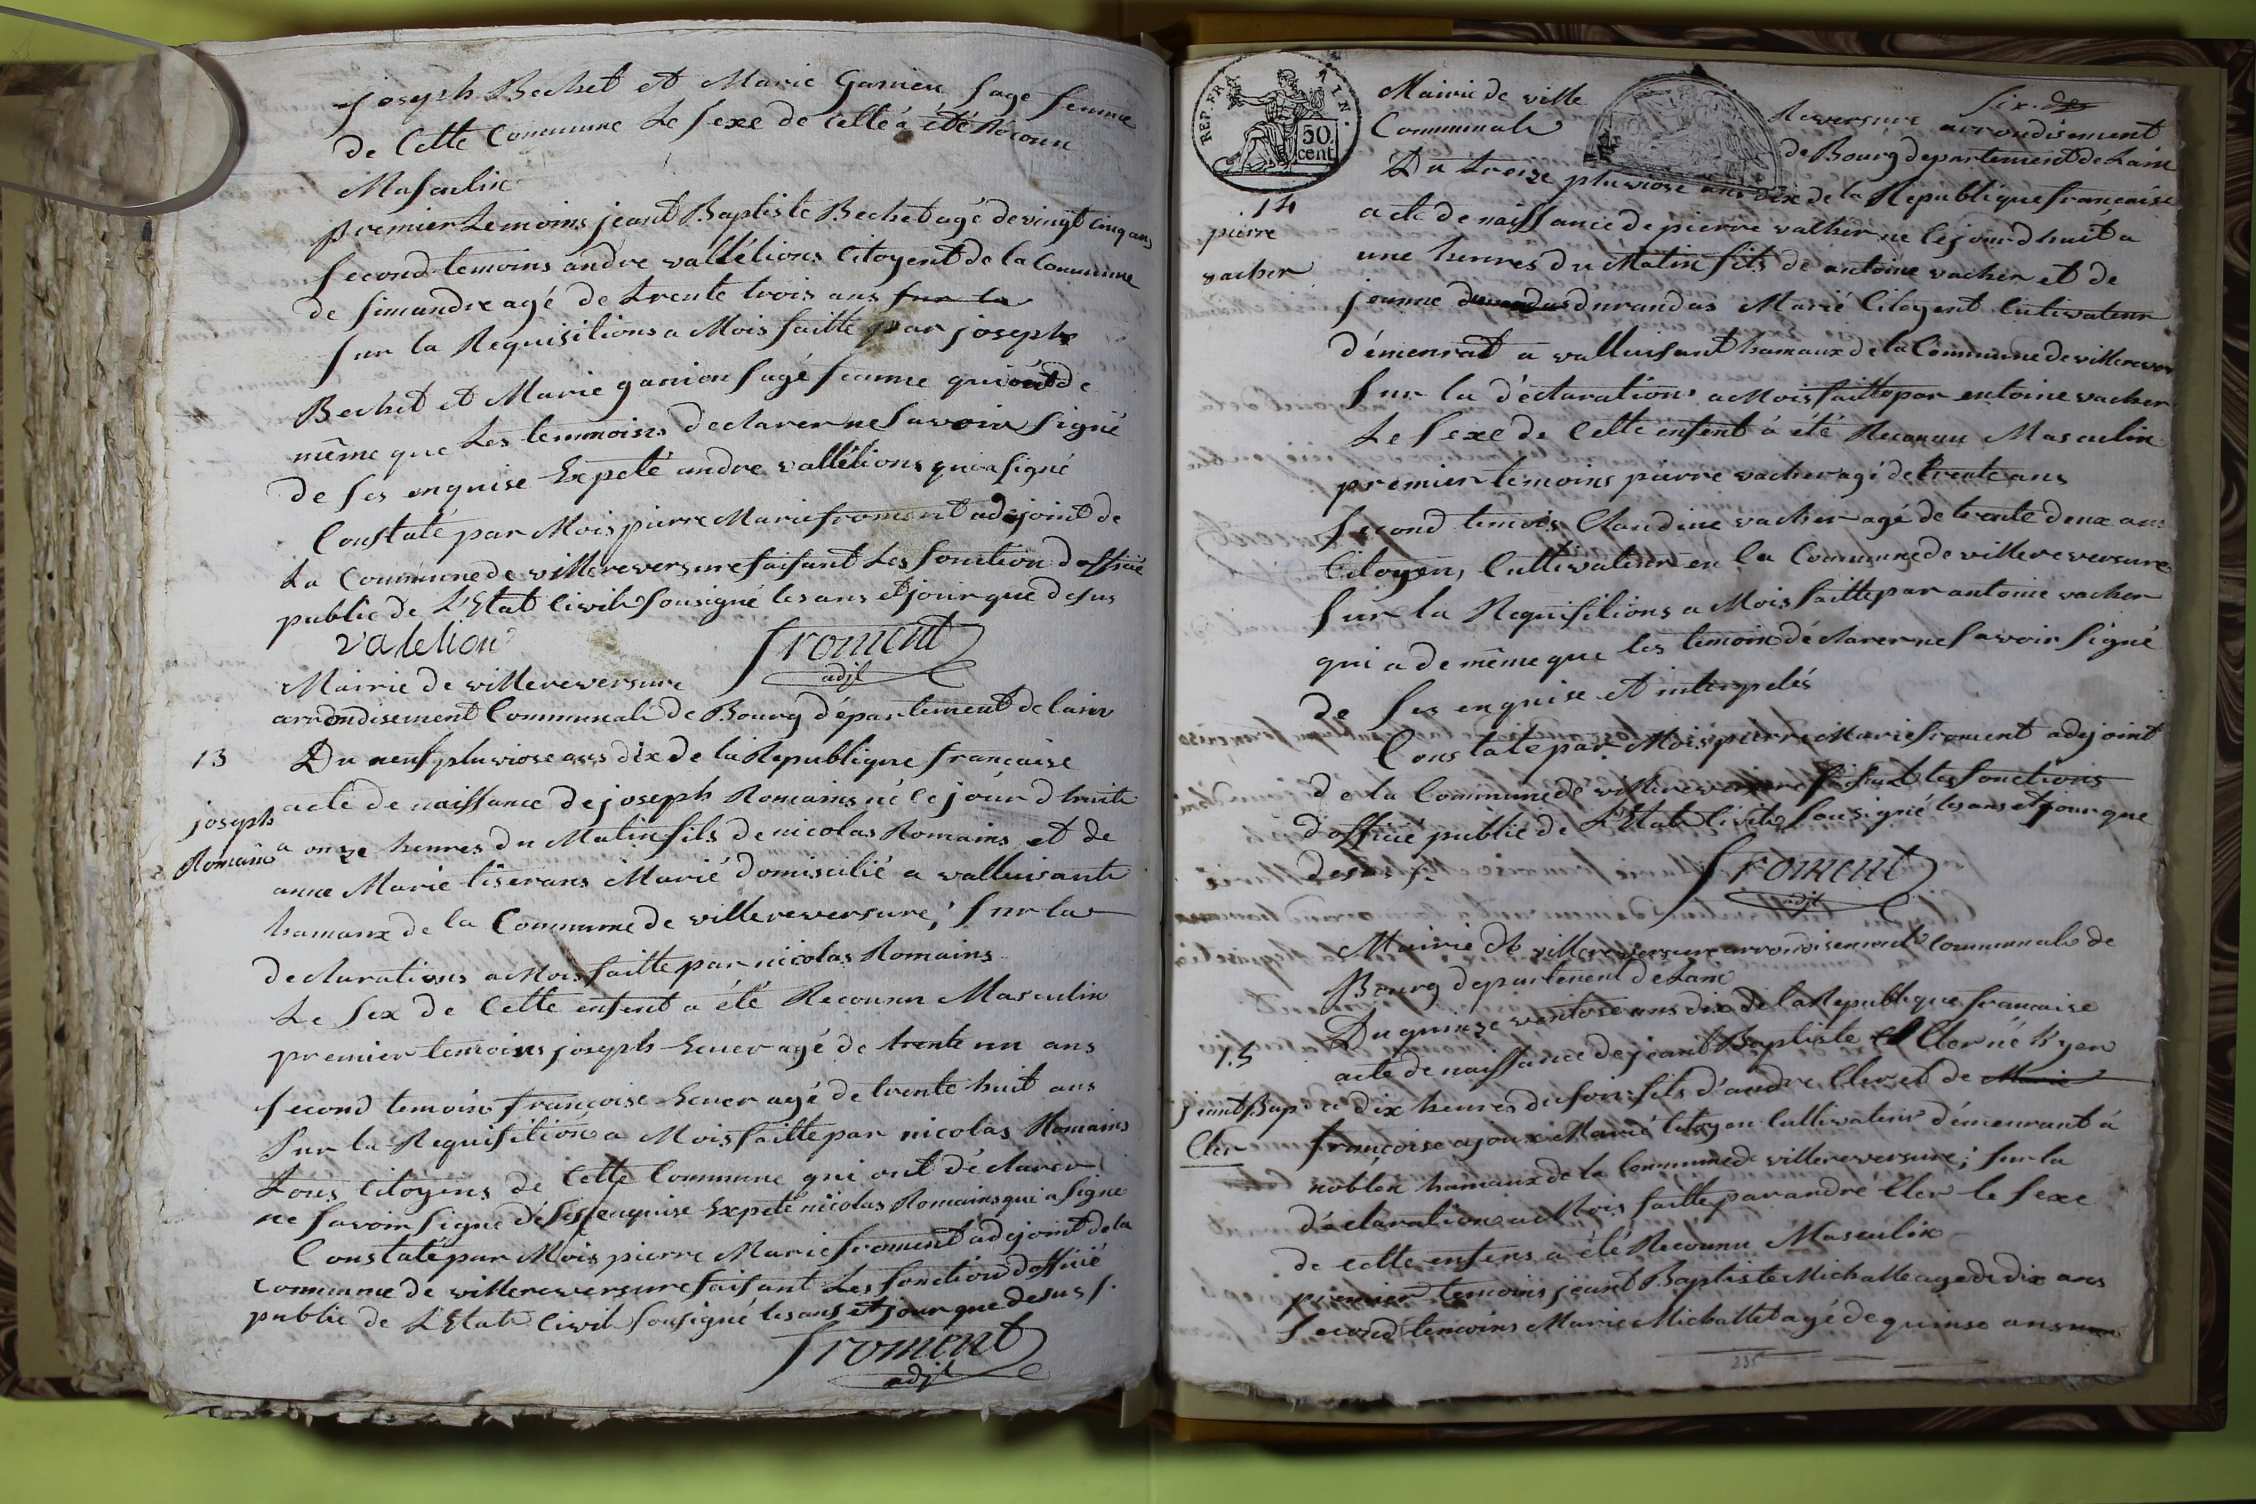 joseph Bechet et Marie Garnier sage femme
de Cette Commune Le sexe de Celle à été Réconu
Masculin
premier Lemoins jeant Baptiste Bechet agé de vingt cinq ans
second temoins andre vallélions Citoyent de la Commune
de simandre agé de trente trois ans sur la
sur la Requisitions a Mois faitte par joseph
Bechet et Marie ganion sagé femme qui ont de
même que Les temmoises declarer ne savoir signé
de ses enquise Expelé andre vallélions qui a signé
Constaté par Mois pierre Marie froment adejoint de
La Commune de villereversure faisant Les fonction d'officié
public de L'Etat Civile sousigné les ans et jour que desus
valelion froment
adjt
Mairie de villereversure
arrondisement Communale de Bourg département de lain
13
Du neuf pluviose ans dix de la Republique française
acte de naissance de joseph Romains né le jour d huite
joseph
Romain
a onze heures du Matin fils de nicolas Romains et de
anne Marie tiserans Marié domisilié a valluisante
hamaux de la Commune de villereversure; sur la
declarations a Mois faitte par nicolas Romains
Le sex de Cette enfent a été Reconnu Masculin
premier temoins joseph hever agé de trente un ans
second temoins françoise hever agé de trente huit ans
sur la Requisition a Mois faitte par nicolas Romains
tous Citoyens de Cette Commune qui ont déclarer
ne savoir signé dé ses enquise Expelé nicolas Romains qui a signe
Constaté par Mois pierre Marie froment adejoint de la
commune de villereversure faisant Les fonction d'officié
public de L'Etat Civil sousigné les ans et jour que desus f.
froment
adjt
REP. FRA
50
cent
Mairie de ville Reversure arrondisement
Six. des
Communale de Bourg departement de Lain
Du treize pluviose ans dix de la République française
14
pierre
vacher
acte de naissance de pierre vacher ne le jour d huit a
une heures du Matin fils de antoine vacher et de
jeanne durandas Marié Citoyent Cutivateur
démenrat a valluisant hamaux de la Commune de villerever
sur la déclarations a Mois faitte par entoine vacher
Le sexe de Cette enfent à été Reconnu Masculin
premier temoins pierre vacher agé de trente ans
second temois Claudine vacher agé de trente deux ans
Citoyen, Cultivateur en la Commune de villereversure
sur la Requisitions a Mois faitte par antoine vacher
qui a de même que les temoin déclarer ne savoir signé
de ses enquise et interpelés
Constaté par Mois pierre Marie froment adejoint
de la Commune de villereversure faisant les fonctions
d'officié public de L'Etat Civile sousigné les ans et jour que
desus f.
froment
adjt
Mairie de villereversure arrondisement communale de
Bourg departement de Lain
Du quinze ventose ans dix de la Republique francaise
15
acte de naissance de jeant Baptiste Cler né hyer
jeant Bap
Cler
a dix heures du soir fils d'andre Cler et de Marie
françoise ajoux Marié Citoyen Cultivateur démeurant à
noblen hamaux de la Commune de villereversure; sur la
déclaration a Mois faitte par andré Cler le sexe
de cette enfens a été Reconnu Masculin
premier temoins jeant Baptiste Michalle age de dix ans
second temoins Marie Michallet agé de quinse ans
235